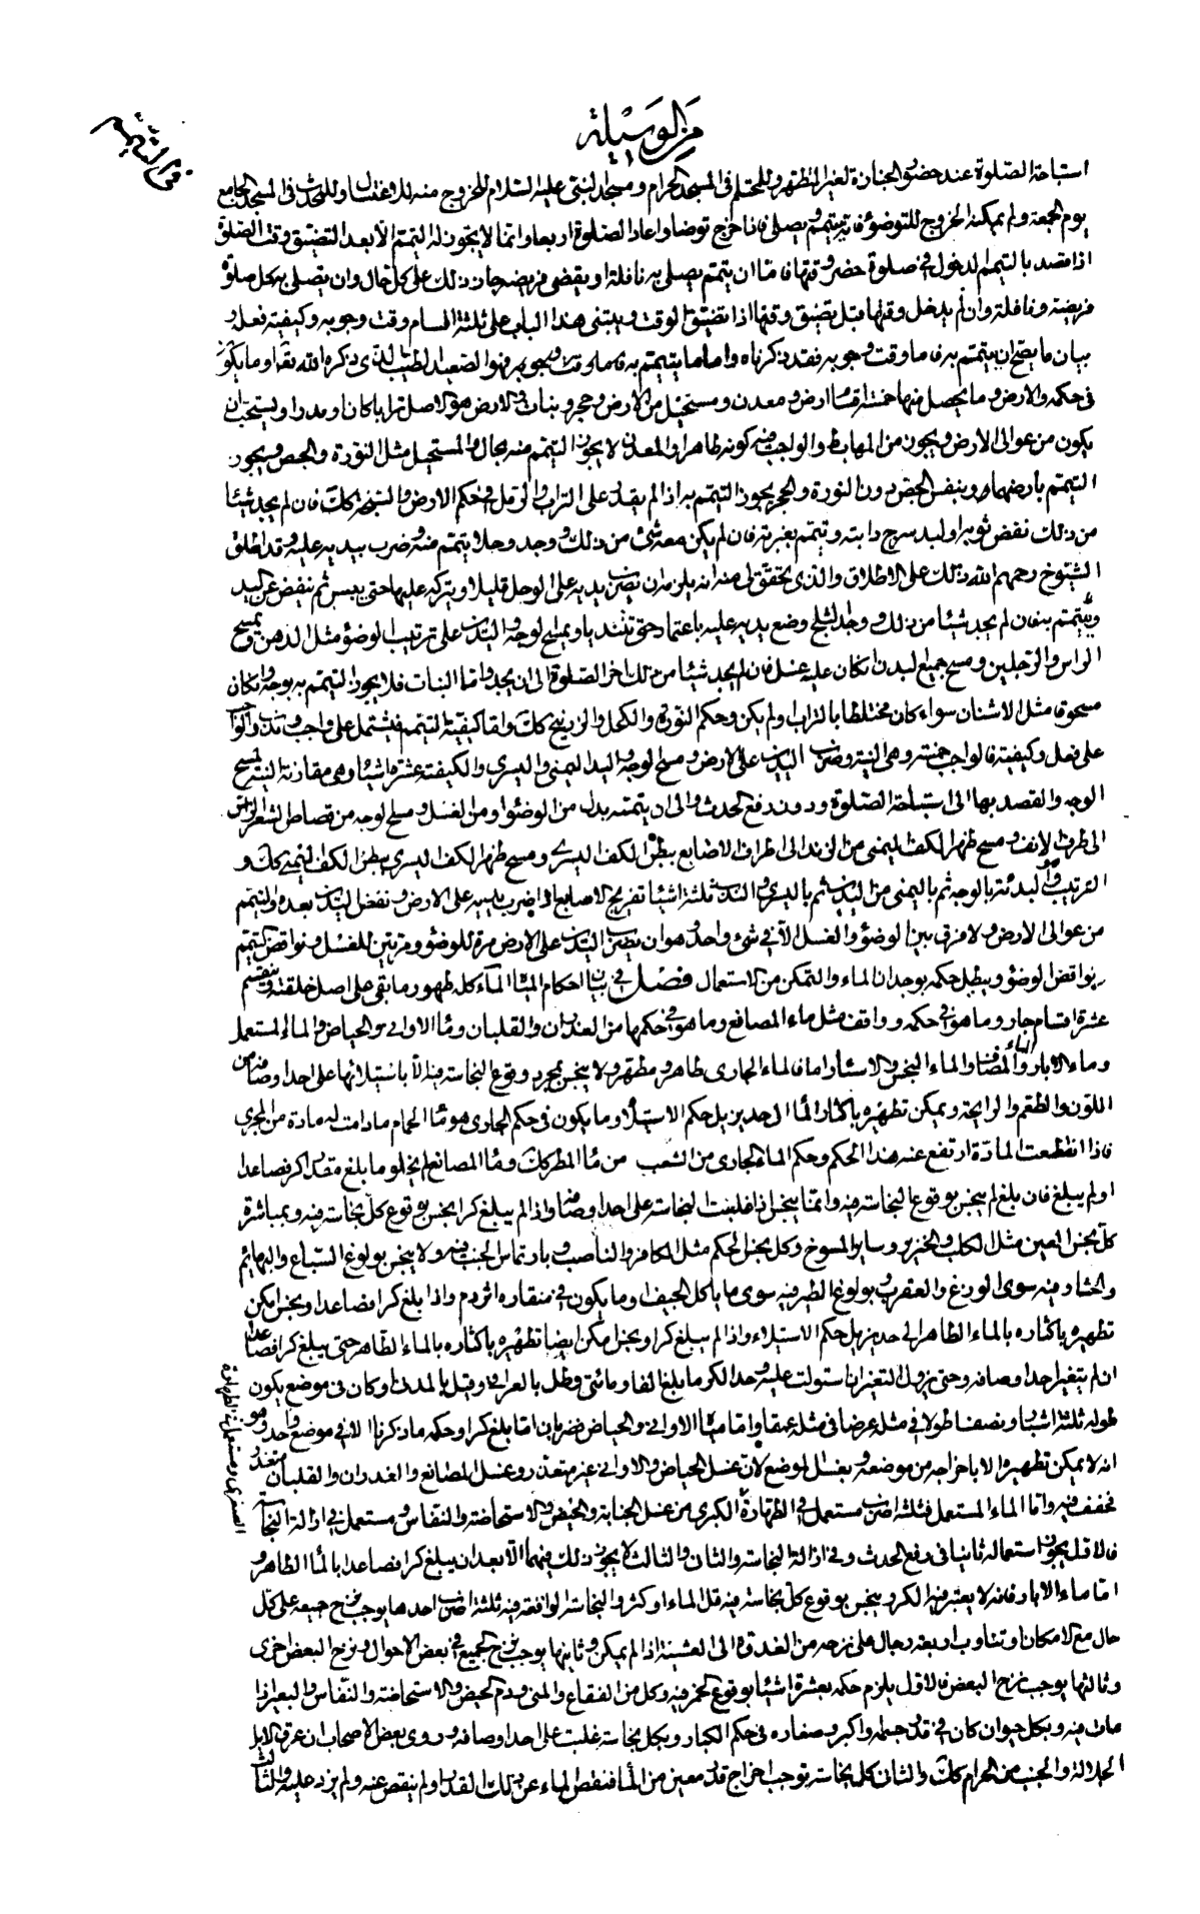 من الوسيلة
في التيمم
استباحة الصلوة عند حضور الجنازة لغير المتطهر وللمحتلم في المسجد الحرام ومسجد النبي عليه السلام للخروج منه للاغتسال وللمحدث في المسجد الجامع
يوم الجمعة ولم يمكنه الخروج للتوضؤ فانه يتيمم ويصلي فاذا خرج توضا واعاد الصلوة اربعا وانما لا يجوز له التيمم الا بعد التضيق وقت الصلوة
اذا قصد بالتيمم الدخول في صلوة حضر وقتها فاما ان يتيمم يصلي به نافلة او يقضي فريضة جاز ذلك على كل حال وان يصلي به كل صلوة
فريضة ونافلة وان لم يدخل وقتها قبل تضيق وقتها اذا تضيق الوقت ويبتني هذا الباب على ثلثة اقسام وقت وجوبه وكيفية فعله و
بيان ما يصح ان يتيمم به فاما وقت وجوبه فقد ذكرناه واما ما يتيمم به فهو الصعيد الطيب الذي ذكره الله تعالى وما يكون
في حكمه والارض وما يحصل منها خمسة اقسام ارض ومعدن ومستحيل من الارض وحجر ونبات والارض هو الاصل ترابا كان او مدرا ويستحب ان
يكون من عوالي الارض ويجوز من المهابط والواجب فيه كونه طاهرا والمعدن لا يجوز التيمم منه بحال والمستحيل مثل النورة والجص ويجوز
التيمم بارضهما وبنفس الجص دون النورة والحجر يجوز التيمم به اذا لم يقدر على التراب والرمل في حكم الارض والسبخة كك فان لم يجد شيئا
من ذلك نفض ثوبه او لبد سرج دابته وتيمم بغبرته فان لم يكن معه شئ من ذلك ووجد وحلا يتيمم منه وضرب بيديه عليه وقد اطلق
الشيوخ رحمهم الله ذلك على الاطلاق والذي تحقق لي منه انه يلزم ان يضرب يديه على الوحل قليلا ويتركه عليها حتى ييبس ثم ينفض عن اليد
ويتيمم به فان لم يجد شيئا من ذلك ووجد الثلج وضع يديه عليه باعتماد حتى تنديا ويمسح الوجه واليدين على ترتيب الوضوء مثل الدهن ويمسح
الراس والرجلين ومسح جميع البدن ان كان عليه غسل فان لم يجد شيئا من ذلك اخر الصلوة الى ان يجد واما النبات فلا يجوز التيمم به بوجه وان كان
مسحوقا مثل الاشنان سواء كان مختلطا بالتراب او لم يكن وحكم النورة والكحل والزرنيخ كك واما كيفية التيمم فيشتمل على واجب وندب والواجب
على فعل وكيفيته فالواجب خمسة وهي النية وضرب اليدين على الارض ومسح الوجه واليد اليمنى واليسرى والكيفية عشرة اشياء وهي مقارنة النية لمسح
الوجه والقصد بها الى استباحة الصلوة دون دفع الحدث والى ان يتيممه بدل من الوضوء او من الغسل ومسح الوجه من قصاص الشعر الراس
الى طرف الانف ومسح ظهر الكف اليمنى من الزند الى اطراف الاصابع ببطن الكف اليسرى ومسح ظهر الكف اليسرى ببطن الكف اليمنى كك و
الترتيب والبدئة بالوجه ثم باليمنى من اليدين ثم باليسرى والندب ثلثة اشياء تفريج الاصابع اذا ضرب بيديه على الارض ونفض اليدين بعده والتيمم
من عوالي الارض ولا فرق بين الوضوء والغسل الا في شئ واحد وهو ان يضرب اليدين على الارض مرة للوضوء ومرتين للغسل ونواقض التيمم
نواقض الوضوء ويبطل حكمه بوجدان الماء والتمكن من الاستعمال فصل في بيان احكام المياه الماء كله طهور ما بقي على اصل خلقته وينقسم
عشرة اقسام جار وما هو في حكمه وواقف مثل ماء المصانع وما هو في حكمها من الغدران والقلبان وماء الاواني والحياض والماء المستعمل
وماء الابار والماء المضاف والماء النجس والاسئار اما فالماء الجارى طاهر ومطهر ولا ينجس بمجرد وقوع النجاسة فيه الا باستيلائها على احد اوصافه من
اللون والطعم والرايحة ويمكن تطهيره باكثار الماء الى حد يزيل حكم الاستيلاء وما يكون في حكم الجارى هو ماء الحمام ما دامت له مادة من المجرى
فاذا انقطعت المادة ارتفع عنه هذا الحكم وحكم الماء الجارى من الشعب من ماء المطر كك وماء المصانع لم يخل وما بلغ مقدار كر فصاعدا
او لم يبلغ فان بلغ لم ينجس بوقوع النجاسة فيه وانما ينجس اذا غلبت النجاسة على احد اوصافه واذا لم يبلغ كرا نجس بوقوع كل نجاسة فيه وبمباشرة
كل نجس العين مثل الكلب والخنزير وساير المسوخ وكل نجس الحكم مثل الكافر والناصب وبارتماس الجنب فيه ولا ينجس بولوغ السباع والبهايم
والحشار فيه سوى الوزغ والعقرب وبولوغ الطير فيه سوى ما ياكل الجيف وما يكون في منقاره اثر دم واذا بلغ كرا فصاعدا ونجس امكن
تطهيره باكثاره بالماء الطاهر الى حد يزيل حكم الاستيلاء واذا لم يبلغ كرا ونجس امكن ايضا تطهيره باكثاره بالماء الطاهر حتى يبلغ كرا فصاعدا
ان لم يتغير احد اوصافه وحتى يزول التغير ان استولت عليه وحد الكر ما بلغ الفا ومائتي رطل بالعراقي وقيل بالمدني او كان في موضع يكون
طوله ثلثة اشبار ونصفا طولا في مثله عرضا في مثله عمقا واما مياه الاواني والحياض ضربان اما بلغ كرا وحكمه ما ذكرنا الا في موضع واحد وهو
انه لا يمكن تطهيره الا باخراجه من موضعه وبغسل الموضع لان غسل الحياض والاواني غير متعذر وغسل المصانع والغدران والقلبان متعذر
فخفف فيه واما الماء المستعمل فثلثة اضرب مستعمل في الطهارة الكبرى من غسل الجنابة والحيض والاستحاضة والنفاس ومستعمل في ازالة النجاسة
الصغرى ومستعمل في الطهارة
فالاول يجوز استعماله ثانيا في دفع الحدث وفي ازالة النجاسة والثاني والثالث لا يجوز ذلك فيهما الا بعد ان يبلغ كرا فصاعدا بالماء الطاهر و
اما ماء الابار فانه لا يعتبر فيه الكر وينجس بوقوع كل نجاسة فيه قل الماء او كثر والنجاسة الواقعة فيه ثلثة اضرب احدها يوجب نزح جميعه على كل
حال مع الامكان او تناوب اربعة رجال على نزحه من الغدوة الى العشية اذا لم يمكن وثانيها يوجب نزح الجميع في بعض الاحوال ونزح البعض اخرى
وثالثها يوجب نزح البعض فالاول يلزم حكمه بعشرة اشياء بوقوع الخمر فيه وكل من الفقاع والمني ودم الحيض والاستحاضة والنفاس والبعير اذا
مات فيه وبكل حيوان كان في قدر جسمه او اكبر وصغاره في حكم الكبار وبكل نجاسة غلبت على احد اوصافه وروى بعض الاصحاب ان عرق الابل
الجلالة والجنب من الحرام كك والثاني كل نجاسة توجب اخراج قدر معين من الماء فنقص الماء عن ذلك القدر او لم ينقص عنه ولم يزد عليه والثالث